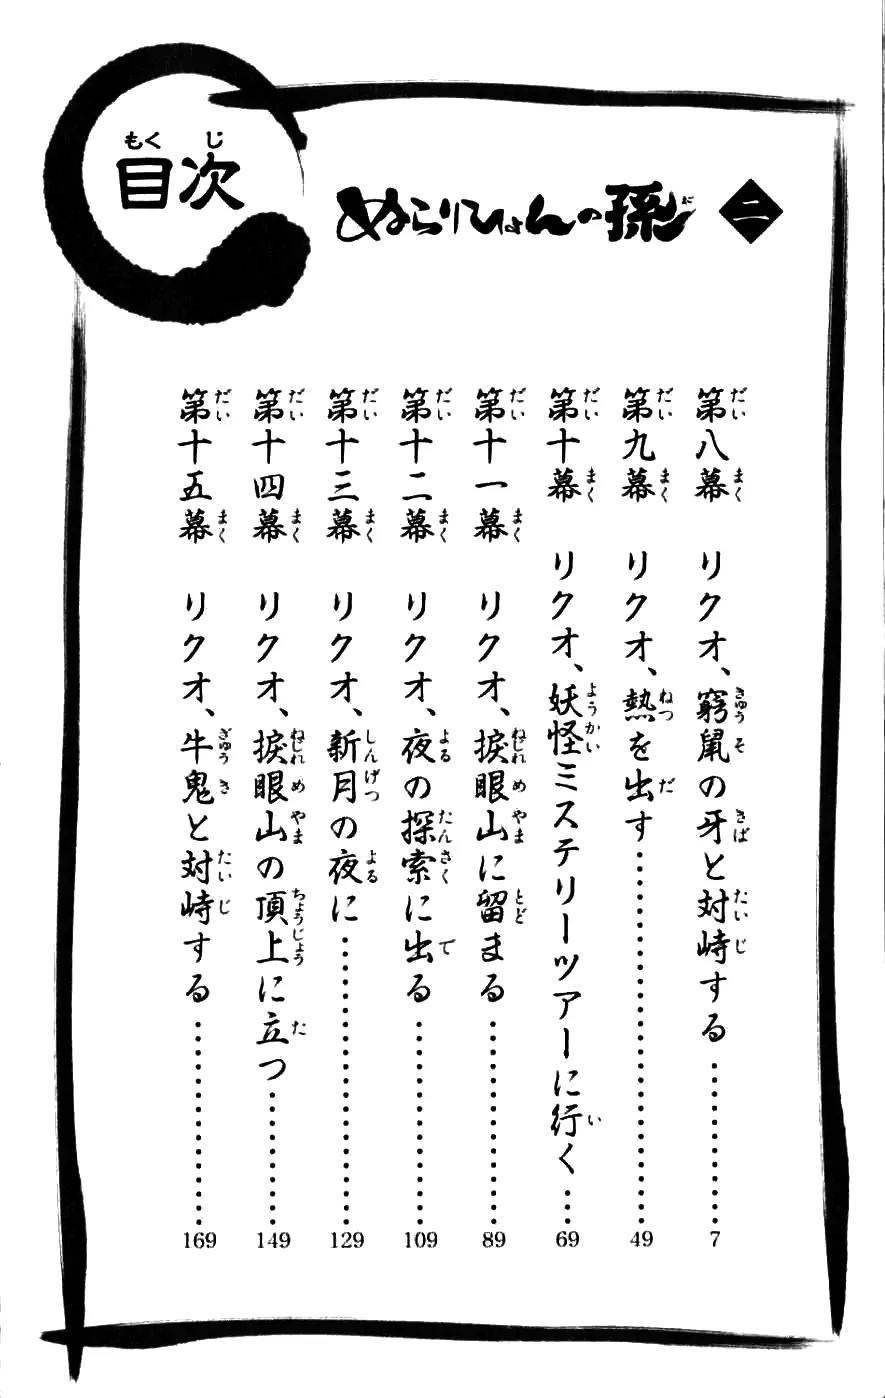 目次
ぬらりひょんの孫 二
第八幕 リクオ、窮鼠の牙と対峙する……7
第九幕 リクオ、熱を出す……49
第十幕 リクオ、妖怪ミステリーツアーに行く……69
第十一幕 リクオ、捩眼山に留まる……89
第十二幕 リクオ、夜の探索に出る……109
第十三幕 リクオ、新月の夜に……129
第十四幕 リクオ、捩眼山の頂上に立つ……149
第十五幕 リクオ、牛鬼と対峙する……169